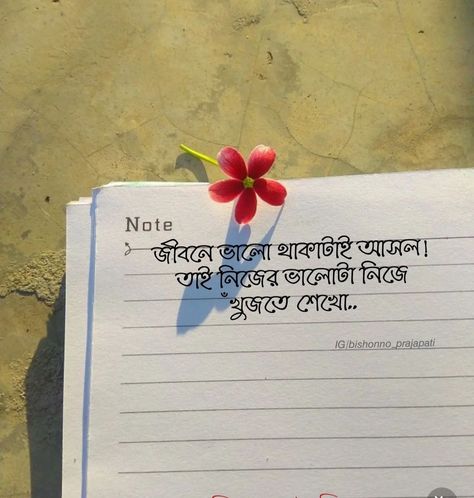 Note
জীবনে ভালো থাকাটাই আসল!
তাই নিজের ভালোটা নিজে
খুঁজতে শেখো..
IG/bishonno_prajapati